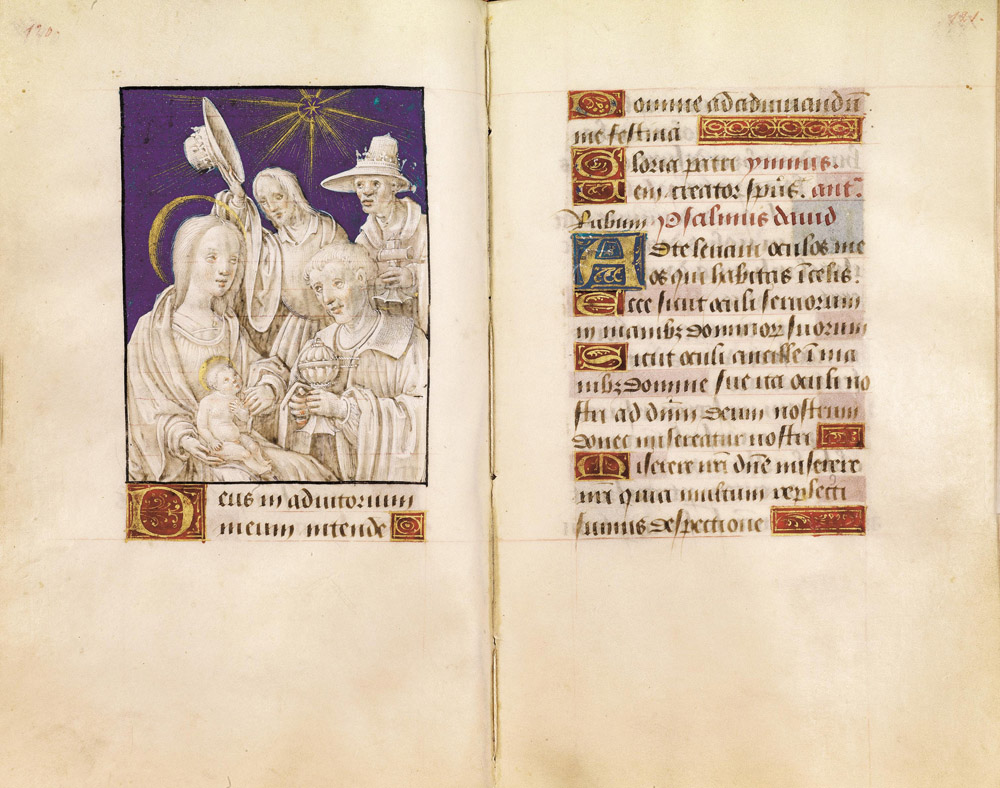 120.
Deus in adiutorium
meum intende
121.
Domine ad adiuuandū
me festina
Gloria patri ymnus.
Ueni creator spūs. antˢ.
Rubum psalmus dauid
Ad te leuaui oculos me
os qui habitas ī celis.
Ecce sunt oculi seruorum
in manibꝫ dominoꝝ suorum
Sicut oculi ancille ī ma
nibꝫ domine sue ita oculi no
stri ad dn̄m deum nostrum
donec misereatur nostri
Miserere nr̄i dn̄e miserere
nr̄i quia multum repleti
sumus despectione